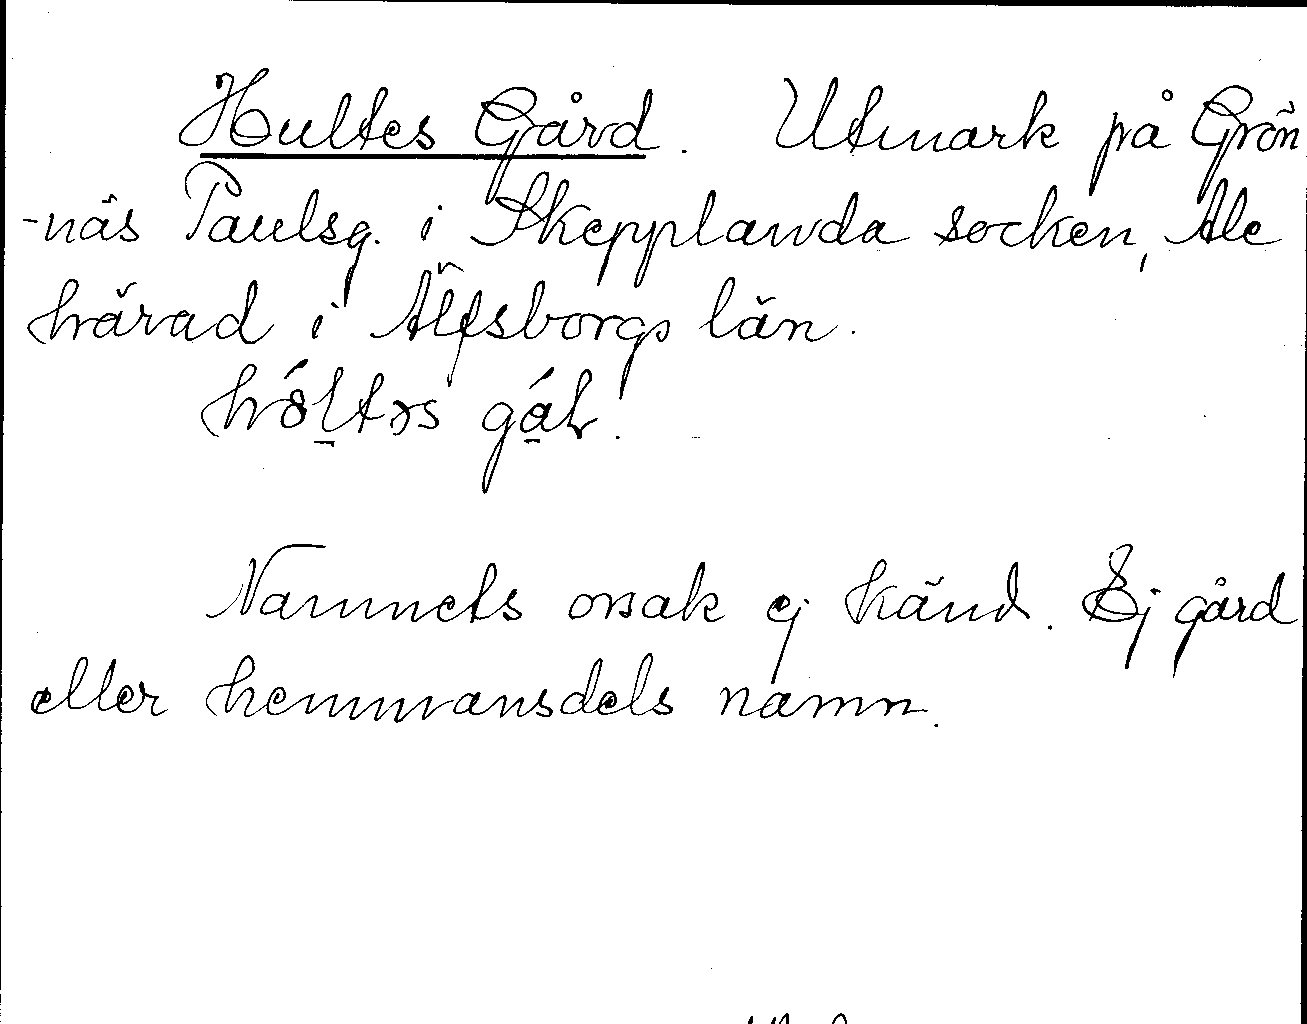 Hultes Gård. Utmark på Grön
-näs Paulsg. i Skepplanda socken, Ale
härad i Älfsborgs län.
Namnets orsak ej känd. Ej gård
eller hemmansdels namn.